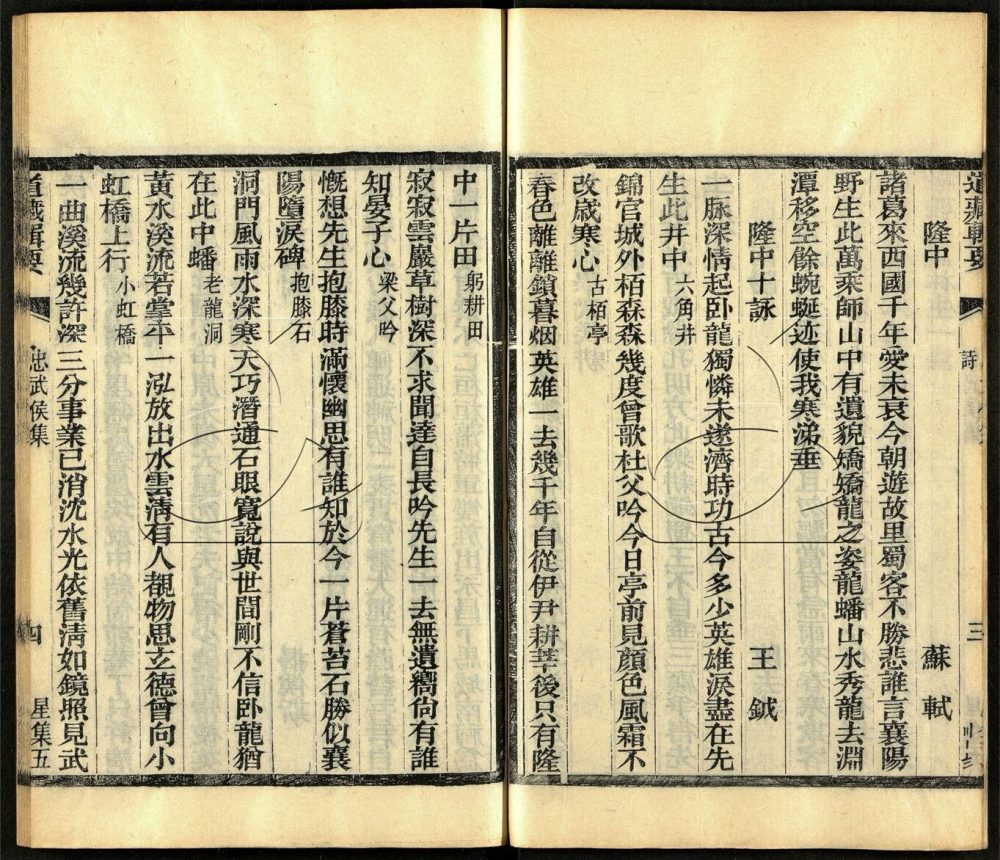 道藏輯要
詩
三
隆中
蘇軾
諸葛來西國千年愛未衰今朝遊故里蜀客不勝悲誰言襄陽
野生此萬乘師山中有遺貌矯矯龍之姿龍蟠山水秀龍去淵
潭移空餘蜿蜒迹使我寒涕垂
隆中十詠
王鉞
一脉深情起卧龍獨憐未遂濟時功古今多少英雄淚盡在先
生此井中 六角井
錦官城外栢森森幾度曾歌杜父吟今日亭前見顔色風霜不
改歲寒心 古栢亭
春色離離鎖暮烟英雄一去幾千年自從伊尹耕莘後只有隆
中一片田 躬耕田
寂寂雲巖草樹深不求聞達自長吟先生一去無遺嚮尙有誰
知晏子心 梁父吟
慨想先生抱膝時滿懷幽思有誰知於今一片蒼苔石勝似襄
陽墮淚碑 抱膝石
洞門風雨水深寒天巧潛通石眼寬說與世間剛不信卧龍猶
在此中蟠 老龍洞
黃水溪流若掌平一泓放出水雲淸有人覩物思玄德曾向小
虹橋上行 小虹橋
一曲溪流幾許深三分事業已消沈水光依舊淸如鏡照見武
道藏輯要
忠武侯集
四
星集五